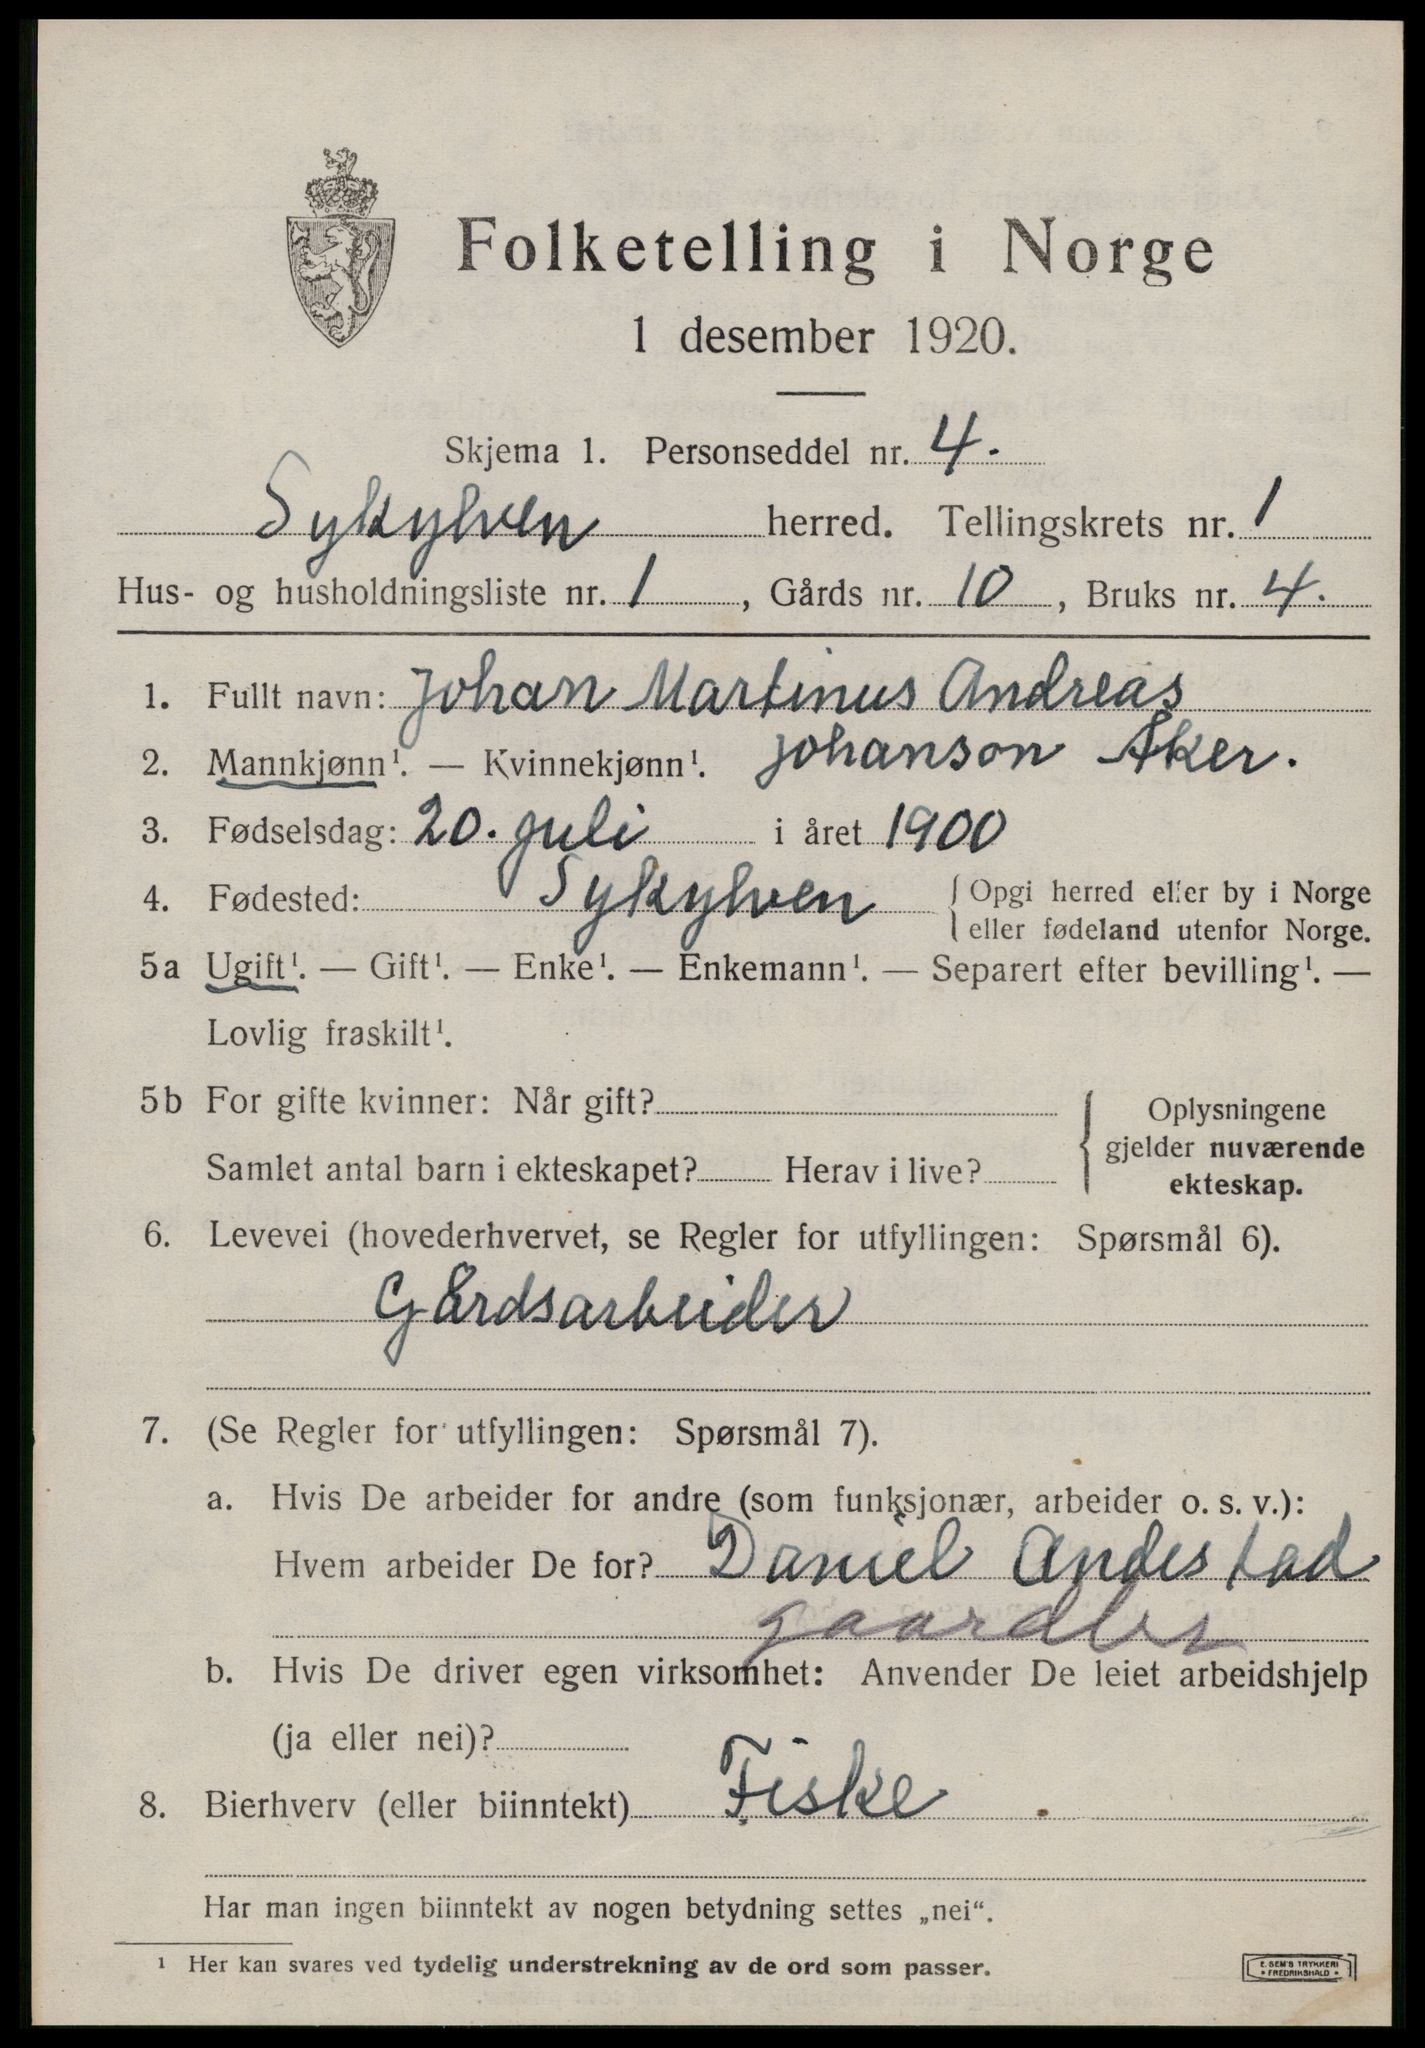 Folketelling i Norge
1 desember 1920.
Skjema 1. Personseddel nr. 4.
Sykylven herred. Tellingskrets nr. 1
Hus- og husholdningsliste nr. 1, Gårds nr. 10, Bruks nr. 4.
1. Fullt navn: Johan Martinus Andreas
2. Mannkjønn¹. — Kvinnekjønn¹. Johanson Åker.
3. Fødselsdag: 20. juli i året 1900
4. Fødested: Sykylven { Opgi herred eller by i Norge
eller fødeland utenfor Norge.
5a Ugift¹. — Gift¹. — Enke¹. — Enkemann¹. — Separert efter bevilling¹. —
Lovlig fraskilt¹.
5b For gifte kvinner: Når gift? { Oplysningene
gjelder nuværende
Samlet antal barn i ekteskapet? Herav i live? ekteskap.
6. Levevei (hovederhvervet, se Regler for utfyllingen: Spørsmål 6).
Gårdsarbeider
7. (Se Regler for utfyllingen: Spørsmål 7).
a. Hvis De arbeider for andre (som funksjonær, arbeider o. s. v.):
Hvem arbeider De for? Daniel Andestad
gaardbr
b. Hvis De driver egen virksomhet: Anvender De leiet arbeidshjelp
(ja eller nei)?
8. Bierhverv (eller biinntekt) Fiske
Har man ingen biinntekt av nogen betydning settes „nei“.
¹ Her kan svares ved tydelig understrekning av de ord som passer.
E. SEM'S TRYKKERI
• FREDRIKSHALD •